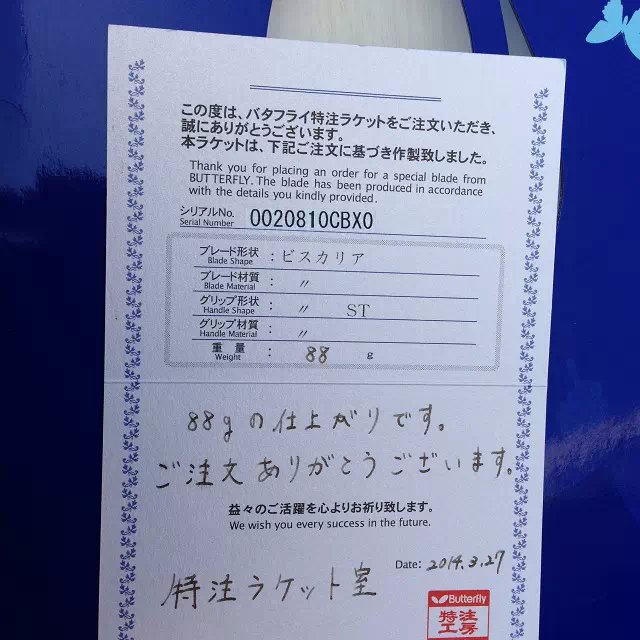 この度は、バタフライ特注ラケットをご注文いただき、
誠にありがとうございます。
本ラケットは、下記ご注文に基づき作製致しました。
Thank you for placing an order for a special blade from
BUTTERFLY. The blade has been produced in accordance
with the details you kindly provided.
シリアルNo. 0020810CBX0
Serial Number
ブレード形状 : ビスカリア
Blade Shape
ブレード材質 : 〃
Blade Material
グリップ形状 : 〃 ST
Handle Shape
グリップ材質 : 〃
Handle Material
重量 : 88 g
Weight
88gの仕上がりです。
ご注文ありがとうございます。
益々のご活躍を心よりお祈り致します。
We wish you every success in the future.
Date: 2014.3.27
特注ラケット室
Butterfly
特注
工房